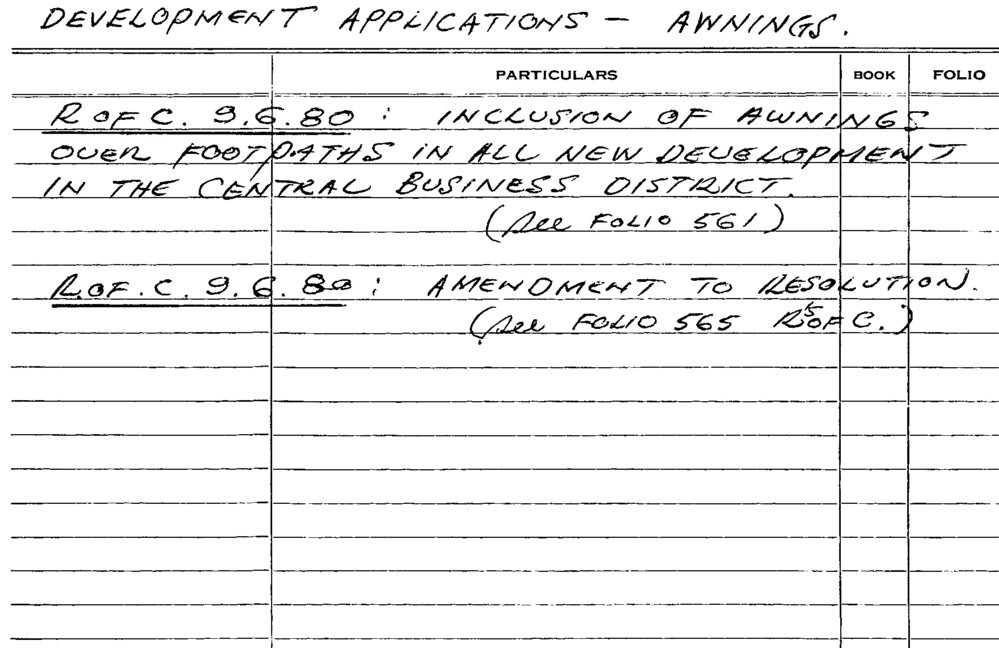 DEVELOPMENT APPLICATIONS – AWNINGS.
PARTICULARS BOOK FOLIO
R OF C. 9.6.80 : INCLUSION OF AWNINGS
OVER FOOTPATHS IN ALL NEW DEVELOPMENT
IN THE CENTRAL BUSINESS DISTRICT.
(See FOLIO 561)
R.OF.C. 9.6.80 : AMENDMENT TO RESOLUTION.
(See FOLIO 565 RsOF C.)